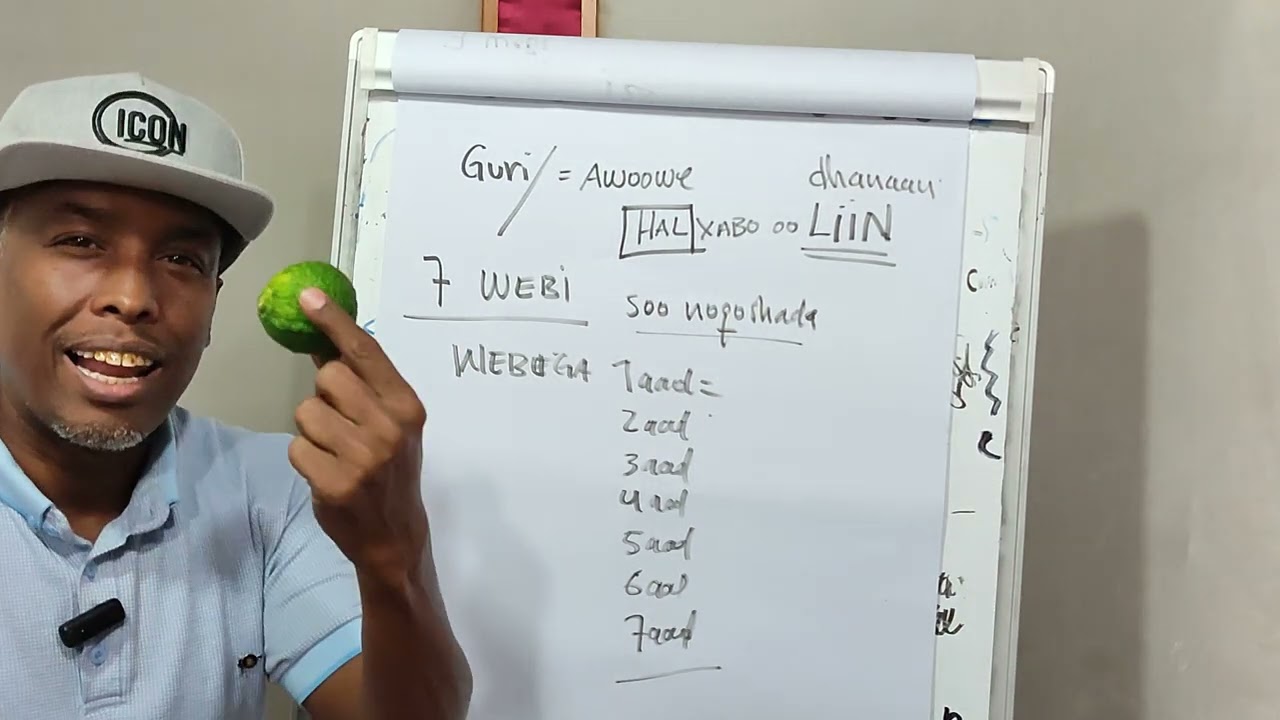 ICON
Guri/ = Awoowe
dhanaan
HAL XABO oo LIIN
7 WEBI
soo noqoshada
WEBIGA 1aad=
2aad
3aad
4aad
5aad
6aad
7aad